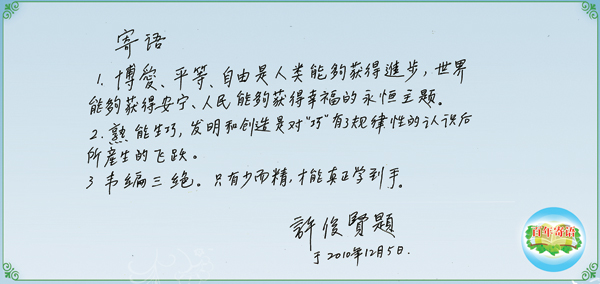 寄语
1. 博愛、平等、自由是人类能夠获得進步，世界
能夠获得安宁、人民能夠获得幸福的永恒主题。
2. 熟能生巧，发明和创造是对“巧”有了规律性的认识后
所產生的飞跃。
3 韦编三绝。只有少而精，才能真正学到手。
許俊賢題
于2010年12月5日.
百年寄语